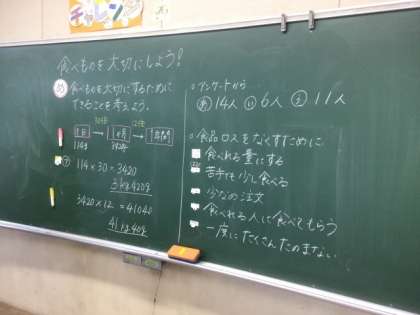 チャレンジ
食べものを大切にしよう!
め 食べものを大切にするために
できることを考えよう。
30倍 12倍
1日 → 1ヶ月 → 1年間
114g 3420g
114×30=3420
3kg420g
3420×12=41040
41kg40g
○アンケートから
14人 6人 11人
○食品ロスをなくすために
食べれる量にする
苦手でも少し食べる
少なめ注文
食べれる人に食べてもらう
一度にたくさんたのまない